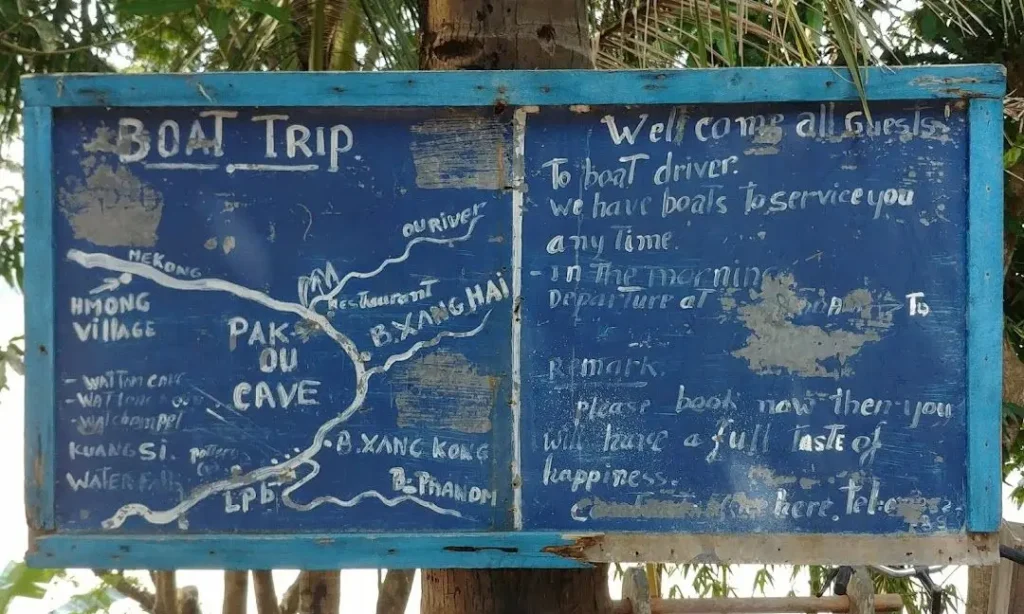 BOAT TRIP
OU RIVER
MEKONG
HMONG
VILLAGE
Restaurant
B.XANG HAI
PAK-
OU
CAVE
- WAT TAM CAVE
KUANG SI.
WATERFALL
B.XANG KONG
LPB
B=PHANOM
Well come all Guests!
To boat driver.
we have boats to service you
any time.
- in the morning
Departure at To
Remark.
please book now then you
will have a full taste of
happiness.
here. Tel: